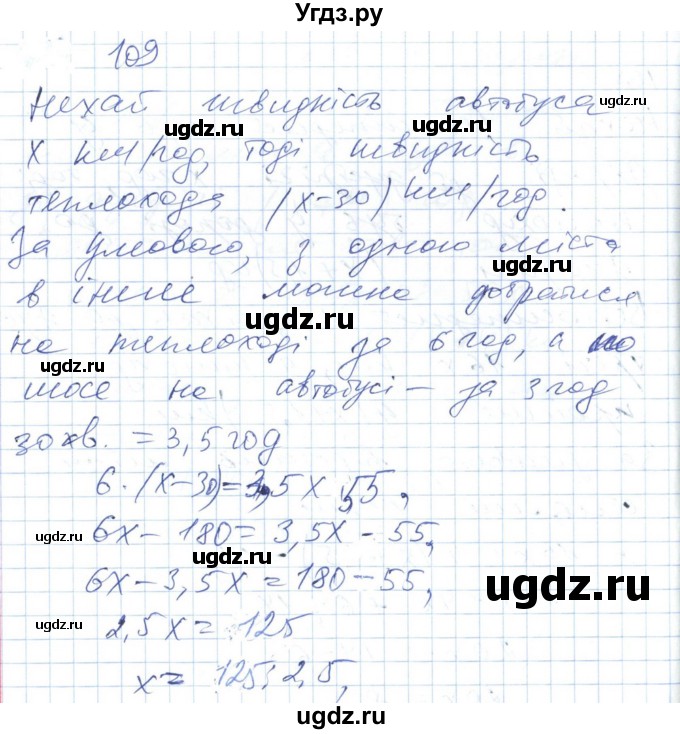 Угдз.ру
109
Нехай швидкість автобуса
х км/год, тоді швидкість
теплохода (х-30) км/год.
За умовою, з одного міста
в інше можна добратися
на теплоході за 6 год, а по
шосе на автобусі – за 3 год
30 хв. = 3,5 год
6·(х-30)=3,5х 55,
6х - 180 = 3,5х - 55,
6х - 3,5х = 180 - 55,
2,5х = 125
х = 125:2,5,
ugdz.ru
ugdz.ru
ugdz.ru
ugdz.ru
ugdz.ru
ugdz.ru
ugdz.ru
ugdz.ru
ugdz.ru
ugdz.ru
ugdz.ru
ugdz.ru